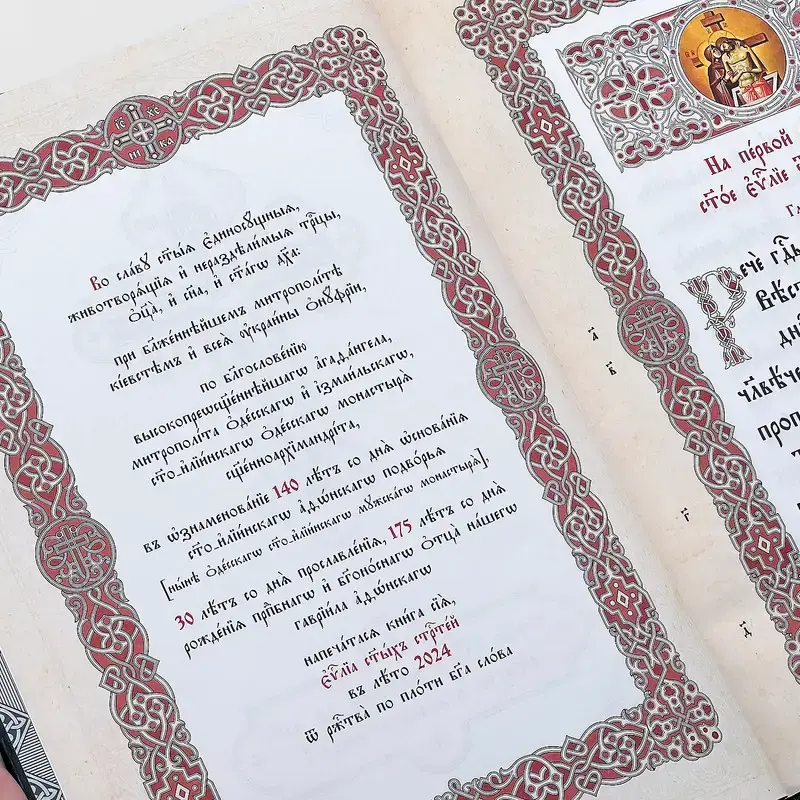 І҃С Х҃С
НИ КА
Во сла́вꙋ ст҃ы́ѧ є҆диносꙋ́щныѧ,
животворѧ́щїѧ и҆ нераздѣ́лимыѧ трⷪ҇цы,
ѻ҆ц҃а̀, и҆ сн҃а, и҆ ст҃а́гѡ дх҃а:
при бл҃же́ннѣйшемъ митрополі́тѣ
кі́евстѣмъ и҆ всеѧ̀ ᲂу҆краи́ны ѻ҆нꙋ́фрїи,
по бл҃гослове́нїю
высокопреѡсщ҃е́ннѣйшагѡ а҆гаѳа́ггела,
митрополі́та ѻ҆де́сскагѡ и҆ и҆зма́ильскагѡ,
ст҃о_и҆лїи́нскагѡ ѻ҆де́сскагѡ монастырѧ̀
сщ҃енноархїмандрі́та,
въ ѡ҆знаменова́нїе 140 лѣ́тъ со днѧ̀ ѡ҆снова́нїѧ
ст҃о_и҆лїи́нскагѡ а҆ѳѡ́нскагѡ подво́рьѧ
[ны́нѣ ѻ҆де́сскагѡ ст҃о_и҆лїи́нскагѡ мꙋ́жскагѡ монастырѧ̀],
30 лѣ́тъ со днѧ̀ прославле́нїѧ, 175 лѣ́тъ со днѧ̀
рожде́нїѧ прпⷣбнагѡ и҆ бг҃оно́снагѡ ѻ҆тца̀ на́шегѡ
гаврїи́ла а҆ѳѡ́нскагѡ
напеча́тасѧ кни́га сїѧ̀,
є҆ѵⷢ҇лїа ст҃ы́хъ стрⷭ҇те́й
въ лѣ́то 2024
ѿ ржⷭ҇тва̀ по пло́ти бг҃а сло́ва
На пе́рвой
ст҃о́е є҆ѵⷢ҇лїе
Речѐ гдⷭ҇ь
члвѣ́че
а҃
в҃
г҃
д҃